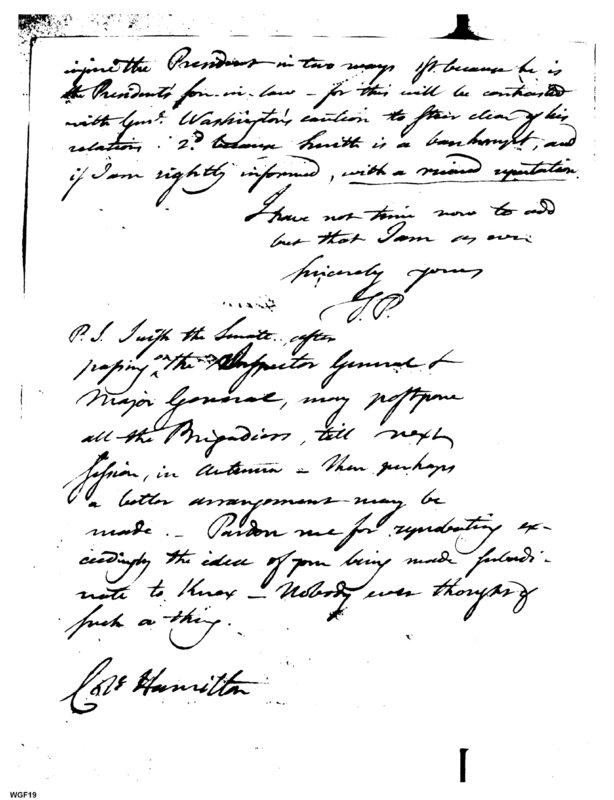 injure the President in two ways 1st. because he is
the Presidents son-in-law – for this will be contrasted
with Genl. Washington's caution to steer clear of his
relations. 2d. because Smith is a bankrupt, and
if I am rightly informed, with a ruined reputation.
I have not time now to add
but that I am as ever
sincerely yours
T. P.
P. S. I wish the Senate, after
passing on the Inspector General &
Major General, may postpone
all the Brigadiers, till next
session, in Autumn – then perhaps
a better arrangement may be
made. – Pardon me for reprobating ex-
ceedingly the idea of your being made subordi-
nate to Knox – Nobody ever thought of
such a thing.
Colo. Hamilton
WGF19